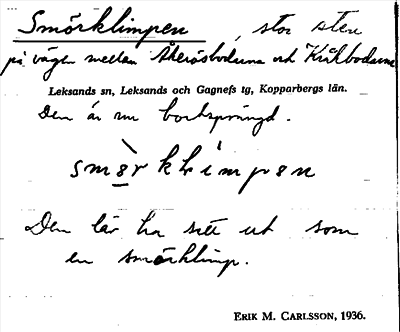 Smörklimpen, stor sten
på vägen mellan Åkeråsbodarna och Kråkbodarna
Leksands sn, Leksands och Gagnefs tg, Kopparbergs län.
Den är nu bortsprängd.
Den lär ha sett ut som
en smörklimp.
ERIK M. CARLSSON, 1936.